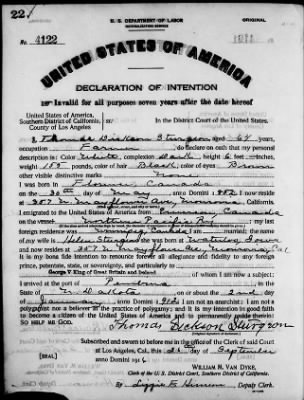 22
U. S. DEPARTMENT OF LABOR
NATURALIZATION SERVICE
ORIGINAL
No. 4122
UNITED STATES OF AMERICA
DECLARATION OF INTENTION
Invalid for all purposes seven years after the date hereof
United States of America,
Southern District of California, ss:
County of Los Angeles
In the District Court of the United States.
I, Thomas Dickson Sturgeon, aged 64 years,
occupation Farmer, do declare on oath that my personal
description is: Color White, complexion Dark, height 6 feet inches,
weight 155 pounds, color of hair Black, color of eyes Brown
other visible distinctive marks None
I was born in Canada
on the day of May, anno Domini 1852; I now reside
at 257 N. Mayflower Ave, Monrovia, Cal.
I emigrated to the United States of America from Canada
on the vessel Northern Pacific Ry; my last
foreign residence was Winnipeg Canada; I am married; the name
of my wife is Helen Sturgeon; she was born at Iowa
and now resides at 257 N. Mayflower Ave, Monrovia, Cal
It is my bona fide intention to renounce forever all allegiance and fidelity to any foreign
prince, potentate, state, or sovereignty, and particularly to
George V King of Great Britain and Ireland, of whom I am now a subject;
I arrived at the port of Pembina, in the
State of N. Dakota, on or about the 2nd day
of January, anno Domini 1912; I am not an anarchist; I am not a
polygamist nor a believer in the practice of polygamy; and it is my intention in good faith
to become a citizen of the United States of America and to permanently reside therein:
SO HELP ME GOD.
Thomas Dickson Sturgeon
(Original signature of declarant.)
Subscribed and sworn to before me in the office of the Clerk of said Court
at Los Angeles, Cal., this day of September
anno Domini 191
[SEAL]
WILLIAM M. VAN DYKE,
Clerk of the U. S. District Court, Southern District of California.
By Deputy Clerk.